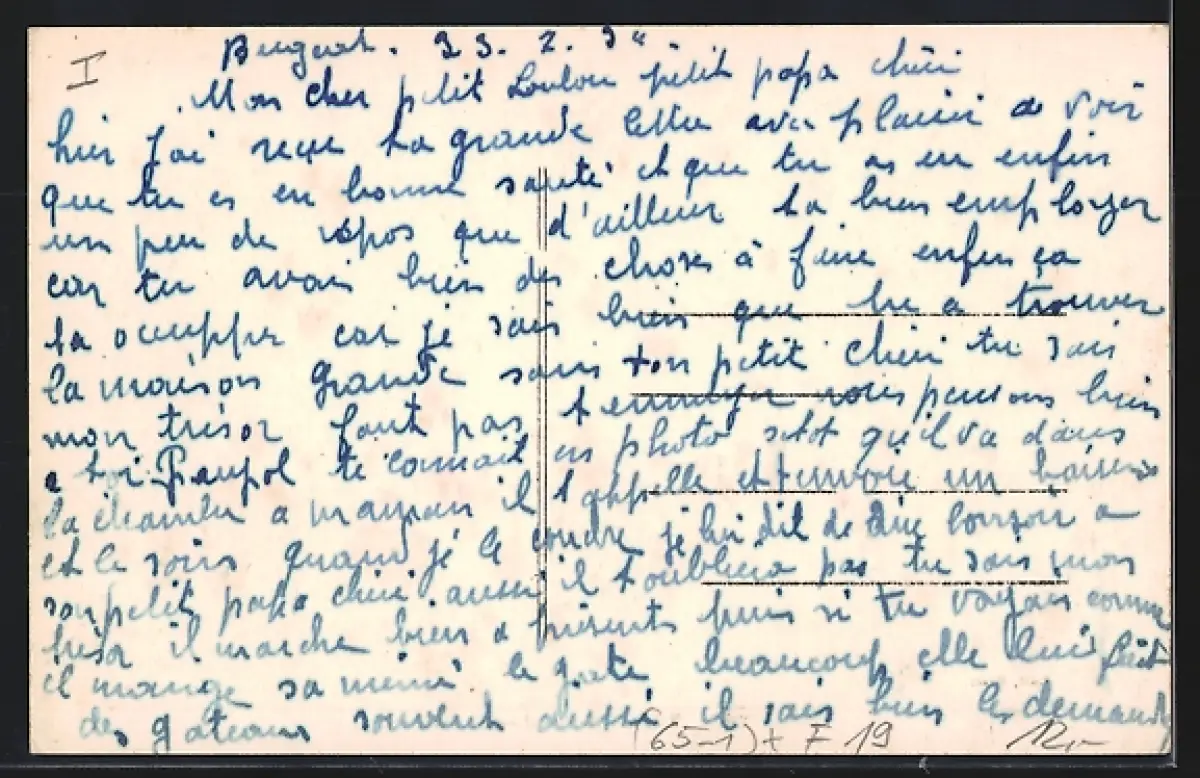 I
23. 2. 3
Mon cher petit Loulou petit papa chéri
hier j'ai reçu ta grande lettre avec plaisir de voir
que tu es en bonne santé et que tu as eu enfin
un peu de repos que d'ailleur ta bien employer
car tu avais bien des choses à faire enfin ça
ta occupper car je sais bien que tu a trouver
la maison grande sans ton petit chéri tu sais
mon trésor faut pas t ennuyer nous pensons bien
a toi Paupol te connait en photo sitot qu'il va dans
la chambre a maman il t appelle et t envoie un baiser
et le soirs quand je le couche je lui dit de dire bonsoir a
son petit papa chéri aussi il t oubliera pas tu sais mon
trésor il marche bien a présents puis si tu voyais comme
il mange sa mémé le gate beaucoup elle lui fait
des gateaux souvent aussi il sais bien les demander
(65-1) + F 19 12,-